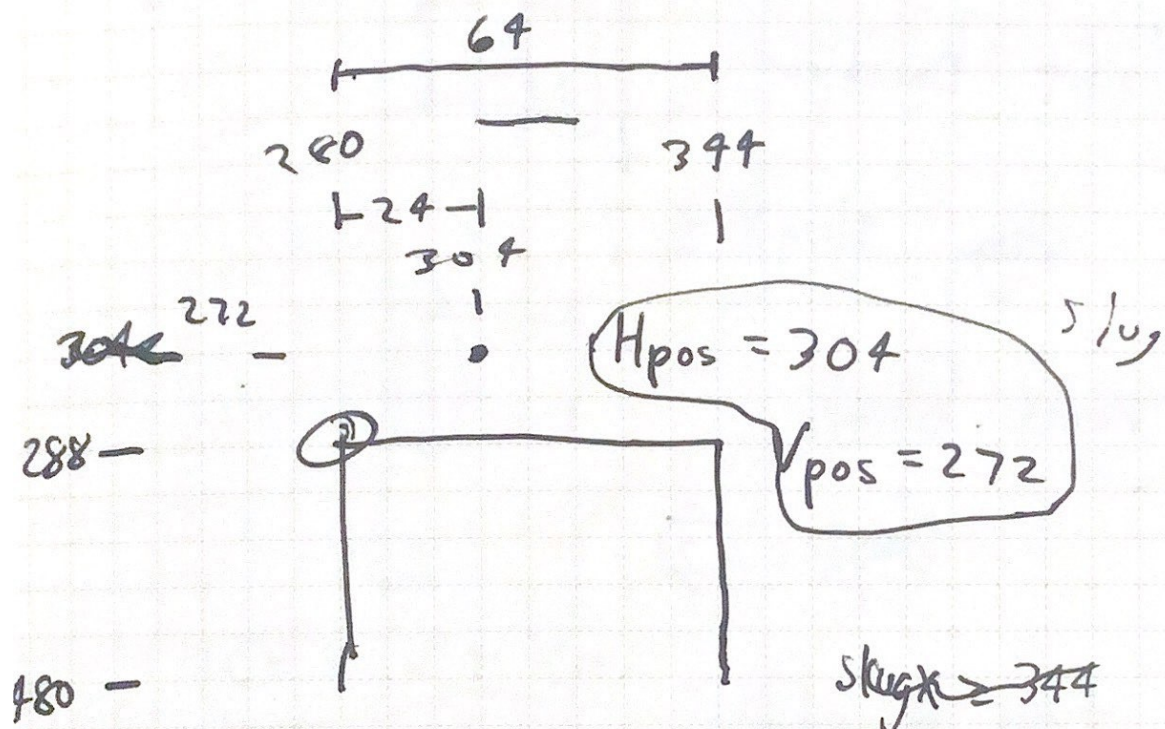 64
280 344
24
304
304 272
Hpos = 304
slug
288
Vpos = 272
480
slugx = 344